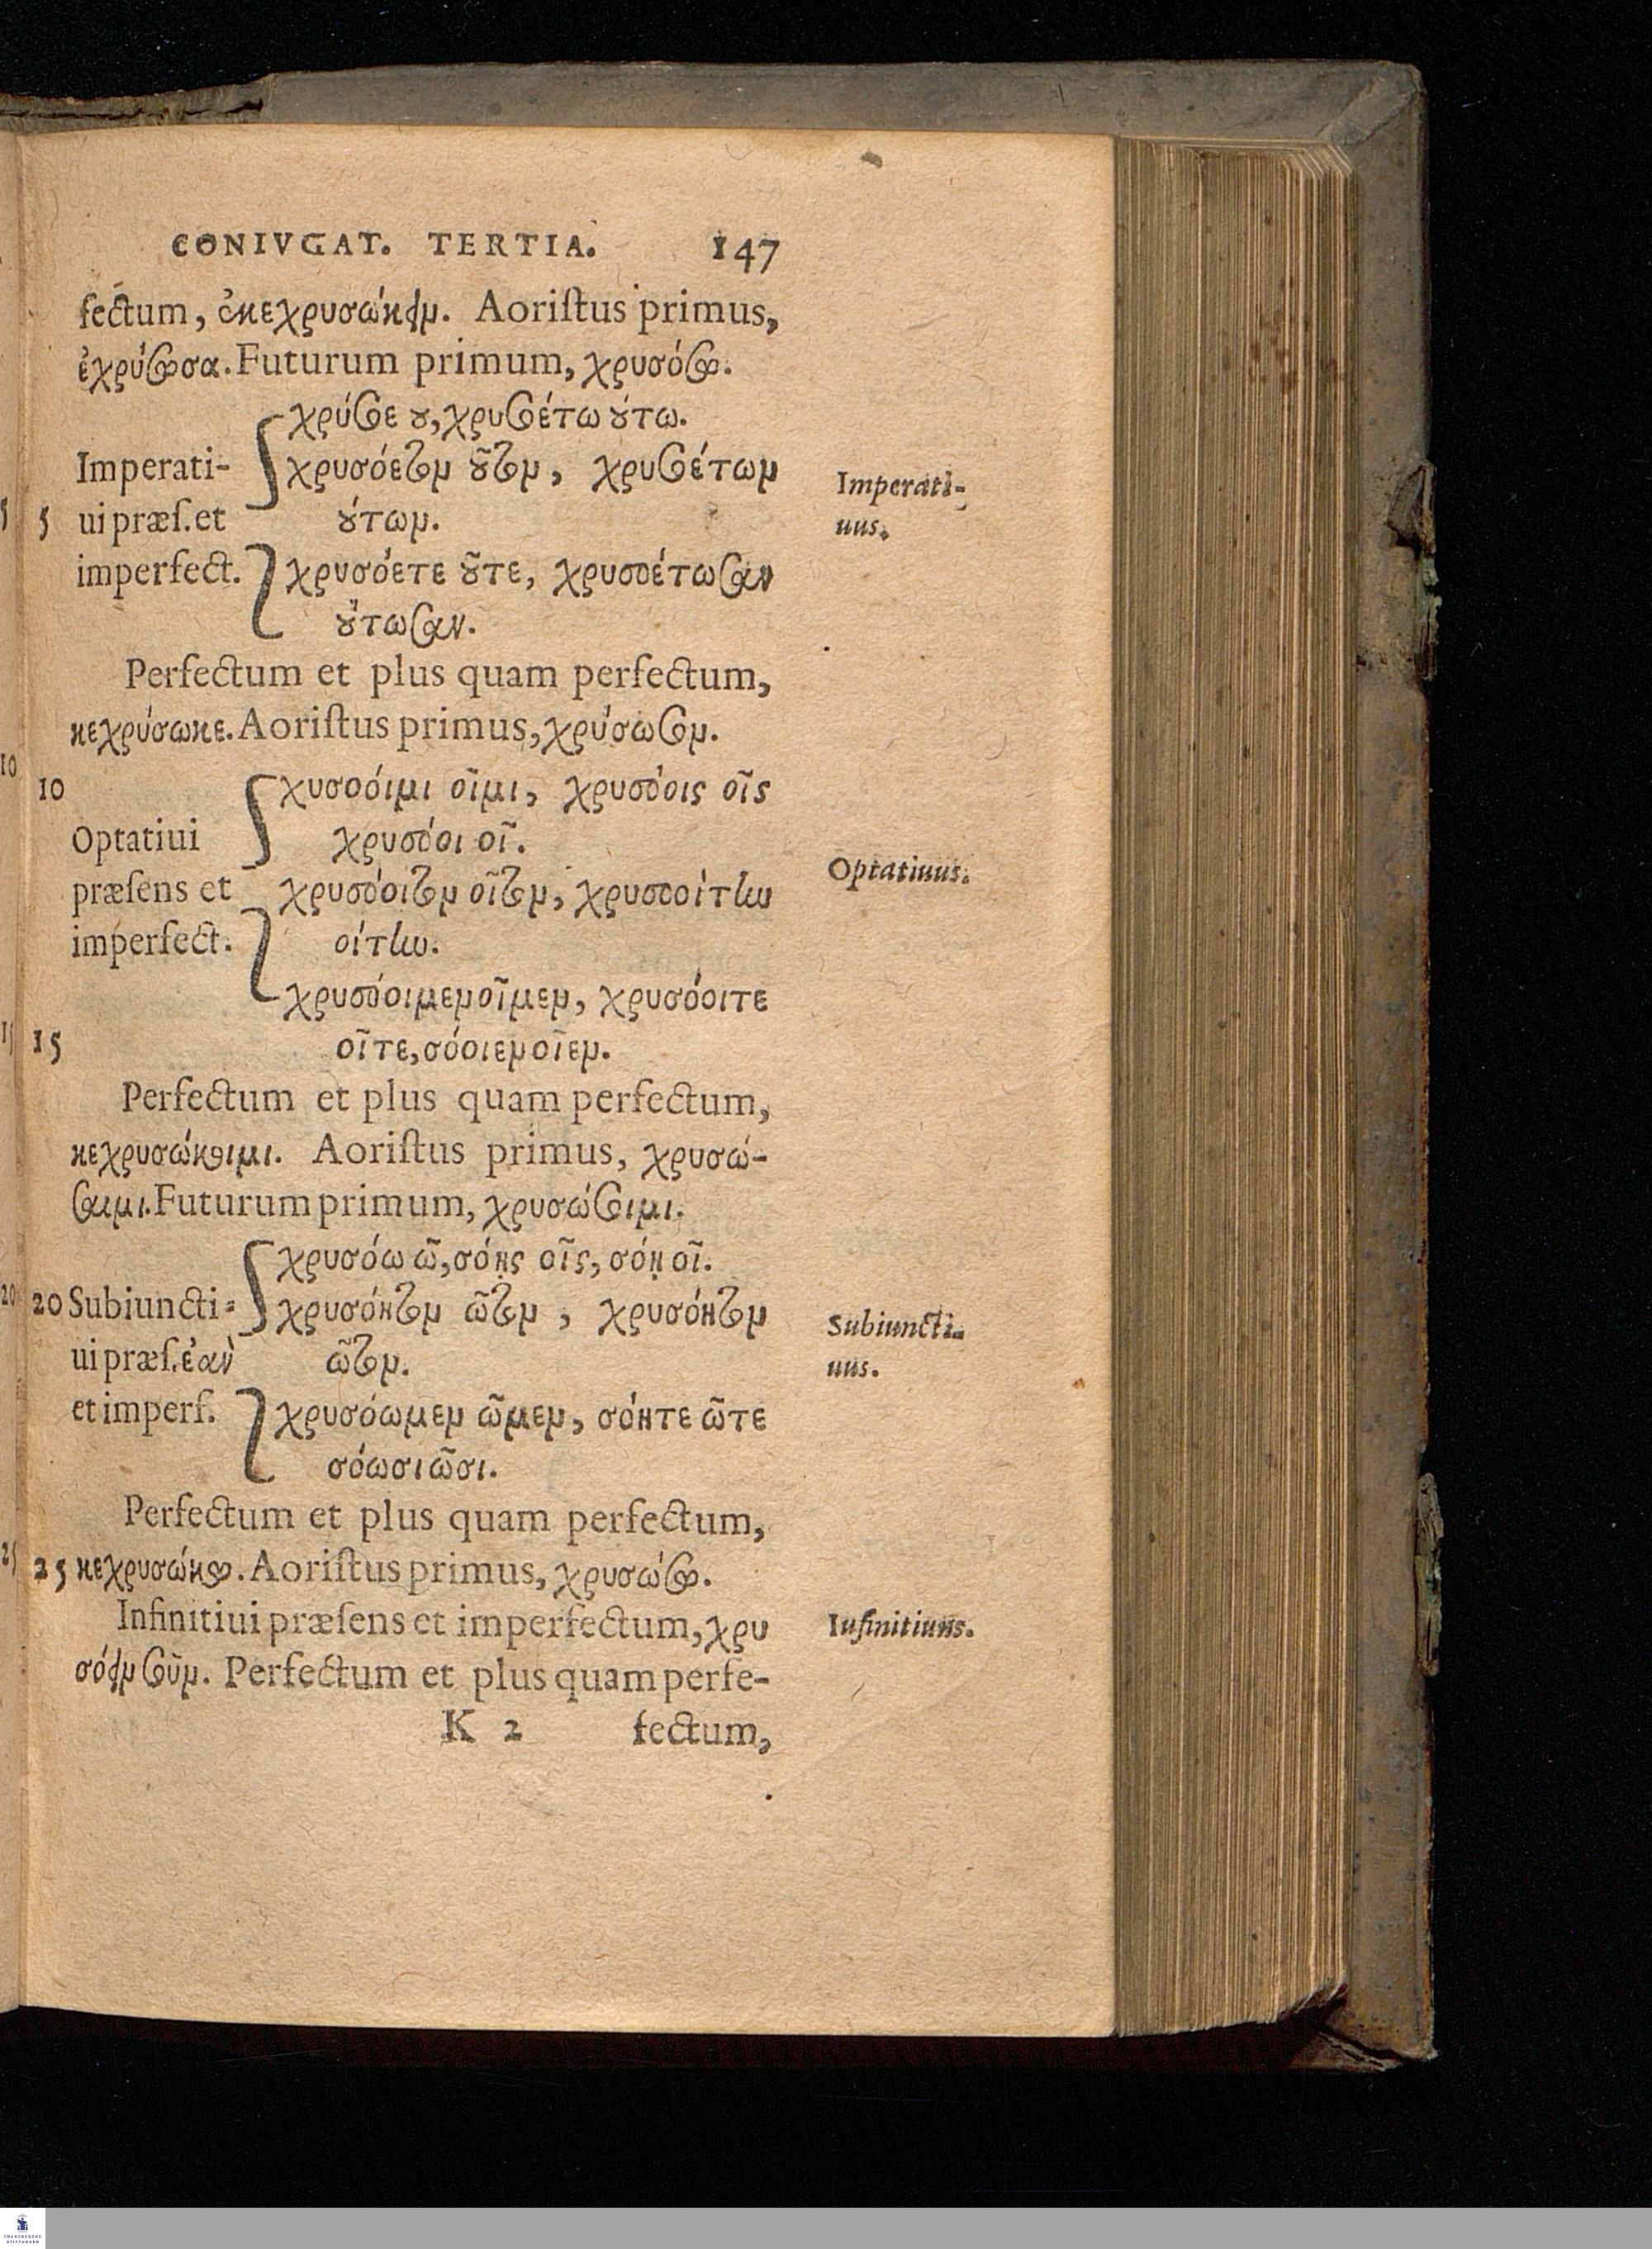 CONIVGAT. TERTIA. 147
fectum, ἐκεχρυσώκειν. Aoriſtus primus,
ἐχρύσωσα. Futurum primum, χρυσόσω.
χρύσοε ου, χρυσοέτω ούτω.
Imperati- χρυσόετον οῦτον, χρυσοέτων
5 ui præſ. et ούτων.
imperfect. χρυσόετε οῦτε, χρυσοέτωσαν
ούτωσαν.
Perfectum et plus quam perfectum,
κεχρύσωκε. Aoriſtus primus, χρύσωσον.
10 χυσοόιμι οῖμι, χρυσόοις οῖς
Optatiui χρυσόοι οῖ.
præſens et χρυσόοιτον οῖτον, χρυσοοίτην
imperfect. οίτην.
χρυσόοιμεν οῖμεν, χρυσόοιτε
15 οῖτε, σόοιεν οῖεν.
Perfectum et plus quam perfectum,
κεχρυσώκοιμι. Aoriſtus primus, χρυσώ-
σαιμι. Futurum primum, χρυσώσοιμι.
χρυσόω ῶ, σόῃς οῖς, σόῃ οῖ.
20 Subiuncti- χρυσόητον ῶτον, χρυσόητον
ui præſ. ἐὰν ῶτον.
et imperf. χρυσόωμεν ῶμεν, σόητε ῶτε
σόωσι ῶσι.
Perfectum et plus quam perfectum,
25 κεχρυσώκω. Aoriſtus primus, χρυσώσω.
Infinitiui præſens et imperfectum, χρυ
σόειν σοῦν. Perfectum et plus quam perfe-
K 2 fectum,
Imperati-
uus.
Optatiuus.
Subiuncti-
uus.
Iufinitiuus.
FRANCKESCHE
STIFTUNGEN